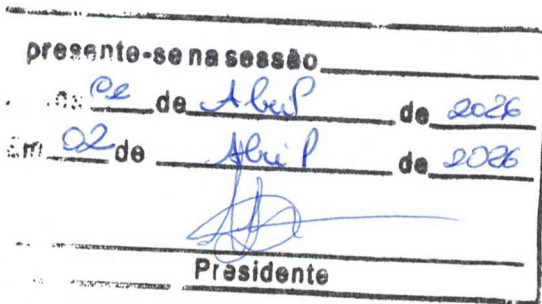 presente-se na sessão
de Abril de 2026
Em 02 de Abril de 2026
Presidente